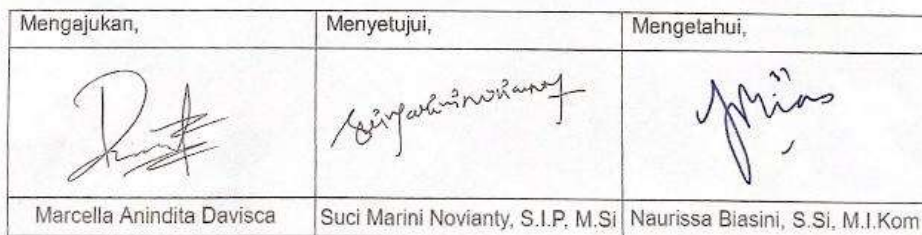 Mengajukan,
Menyetujui,
Mengetahui,
Marcella Anindita Davisca
Suci Marini Novianty, S.I.P, M.Si
Naurissa Biasini, S.Si, M.I.Kom